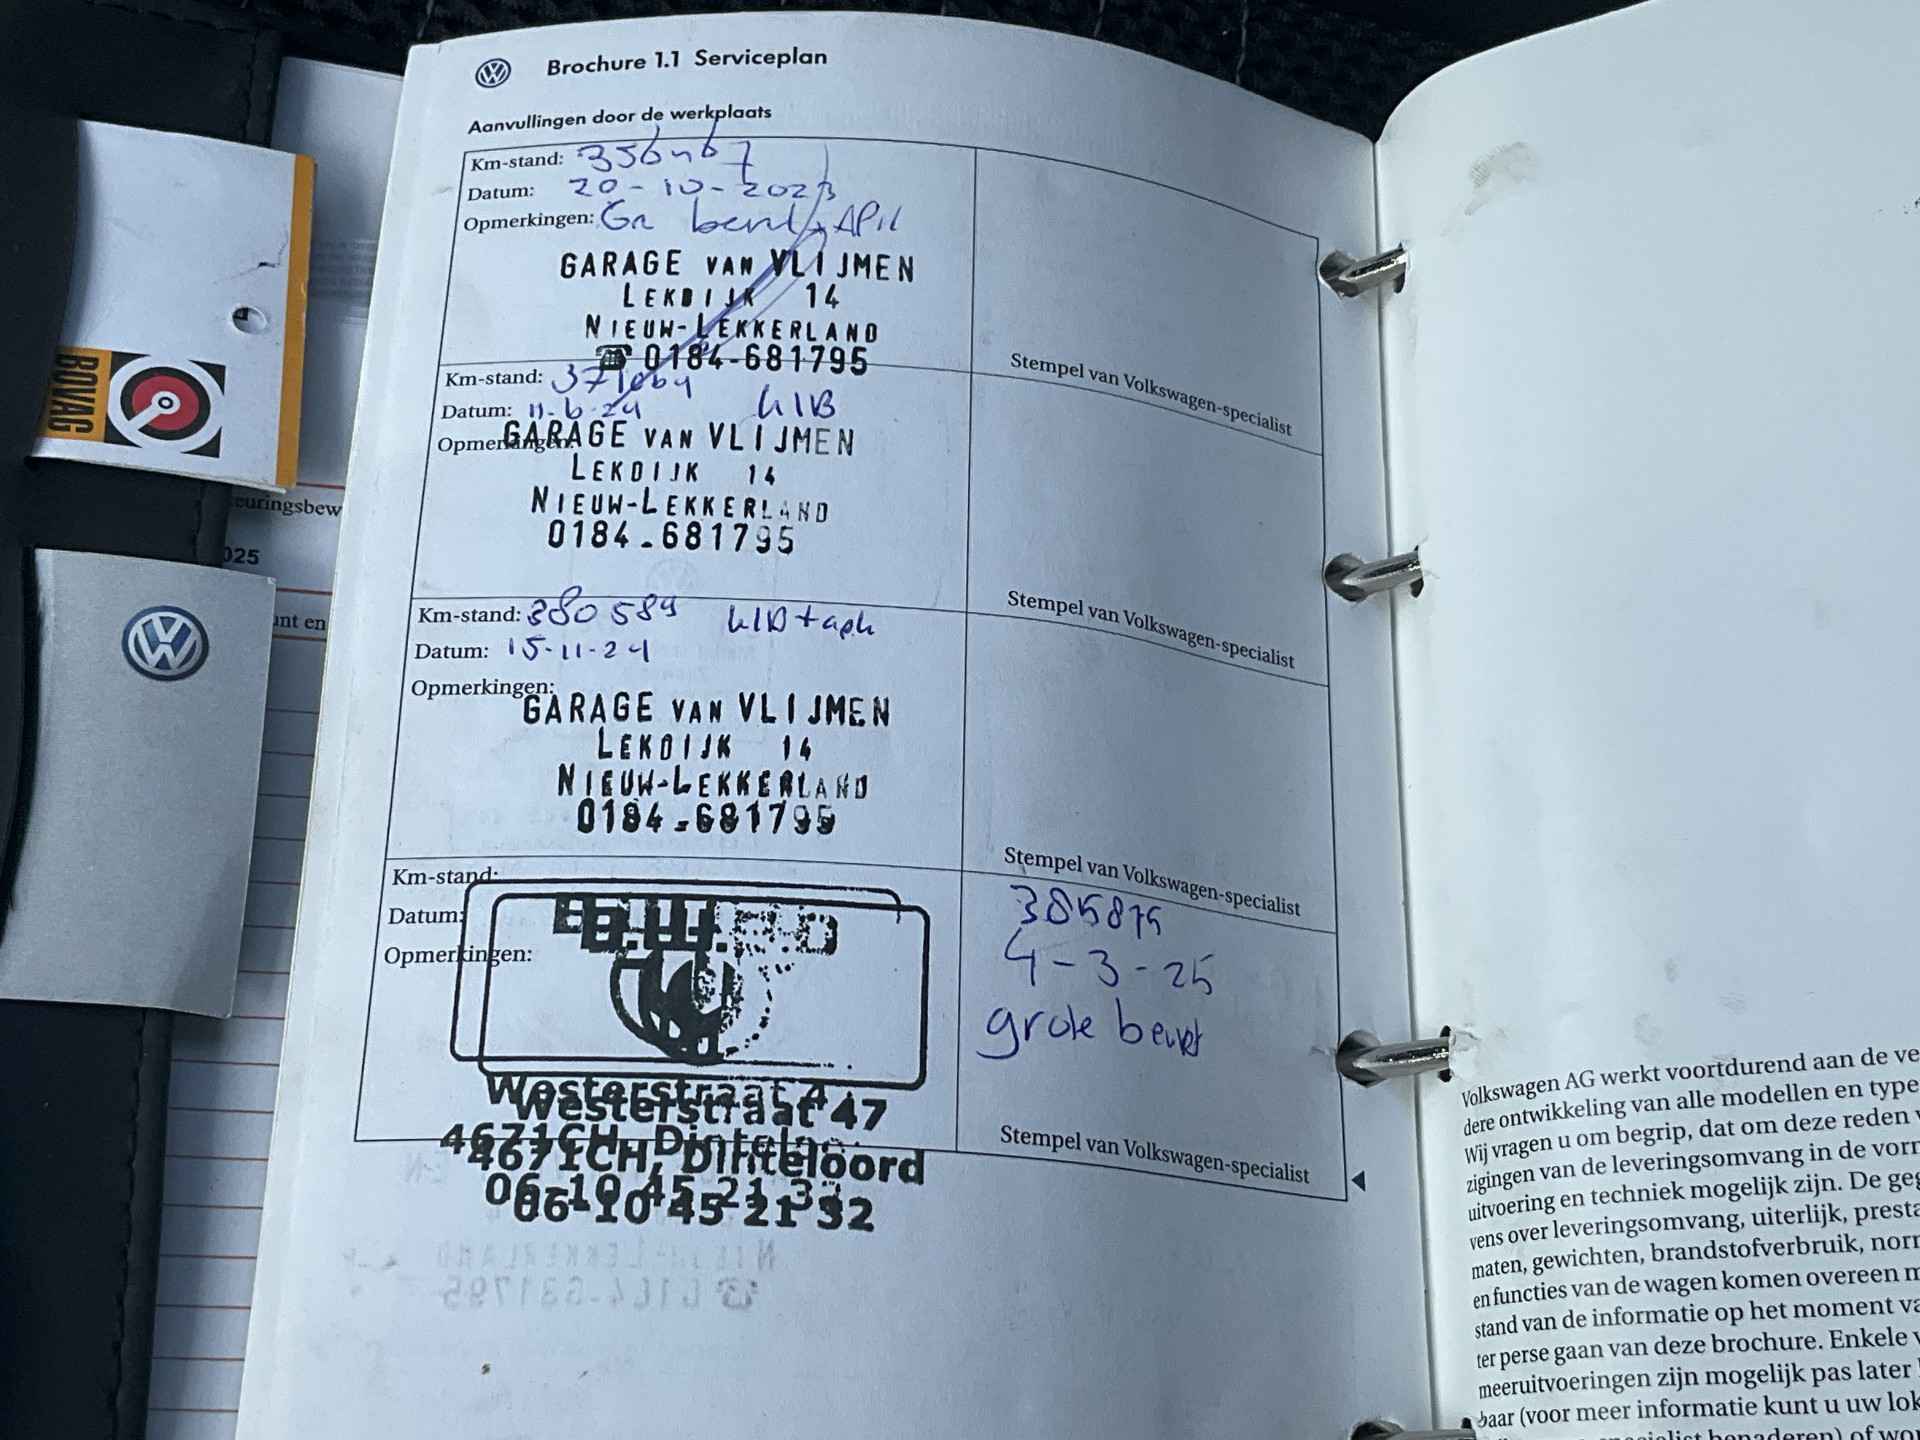 Brochure 1.1 Serviceplan
Aanvullingen door de werkplaats
Km-stand: 356467
Datum: 20-10-2023
Opmerkingen: Gr beurt, APK
GARAGE VAN VLIJMEN
LEKDIJK 14
NIEUW-LEKKERLAND
☎ 0184-681795
Stempel van Volkswagen-specialist
Km-stand: 371064
Datum: 11-6-24 KlB
Opmerkingen:
GARAGE VAN VLIJMEN
LEKDIJK 14
NIEUW-LEKKERLAND
0184-681795
Stempel van Volkswagen-specialist
Km-stand: 380589 KlB + apk
Datum: 15-11-24
Opmerkingen:
GARAGE VAN VLIJMEN
LEKDIJK 14
NIEUW-LEKKERLAND
0184-681795
Stempel van Volkswagen-specialist
Km-stand:
Datum:
Opmerkingen:
Westerstraat 47
4671CH, Dinteloord
06-10 45 21 32
385875
4-3-25
grote beurt
Stempel van Volkswagen-specialist
BOVAG
euringsbew
025
nt en
Volkswagen AG werkt voortdurend aan de ve
dere ontwikkeling van alle modellen en type
Wij vragen u om begrip, dat om deze reden
zigingen van de leveringsomvang in de vorm
uitvoering en techniek mogelijk zijn. De geg
vens over leveringsomvang, uiterlijk, presta
maten, gewichten, brandstofverbruik, norm
en functies van de wagen komen overeen m
stand van de informatie op het moment va
ter perse gaan van deze brochure. Enkele
meeruitvoeringen zijn mogelijk pas later
baar (voor meer informatie kunt u uw lok